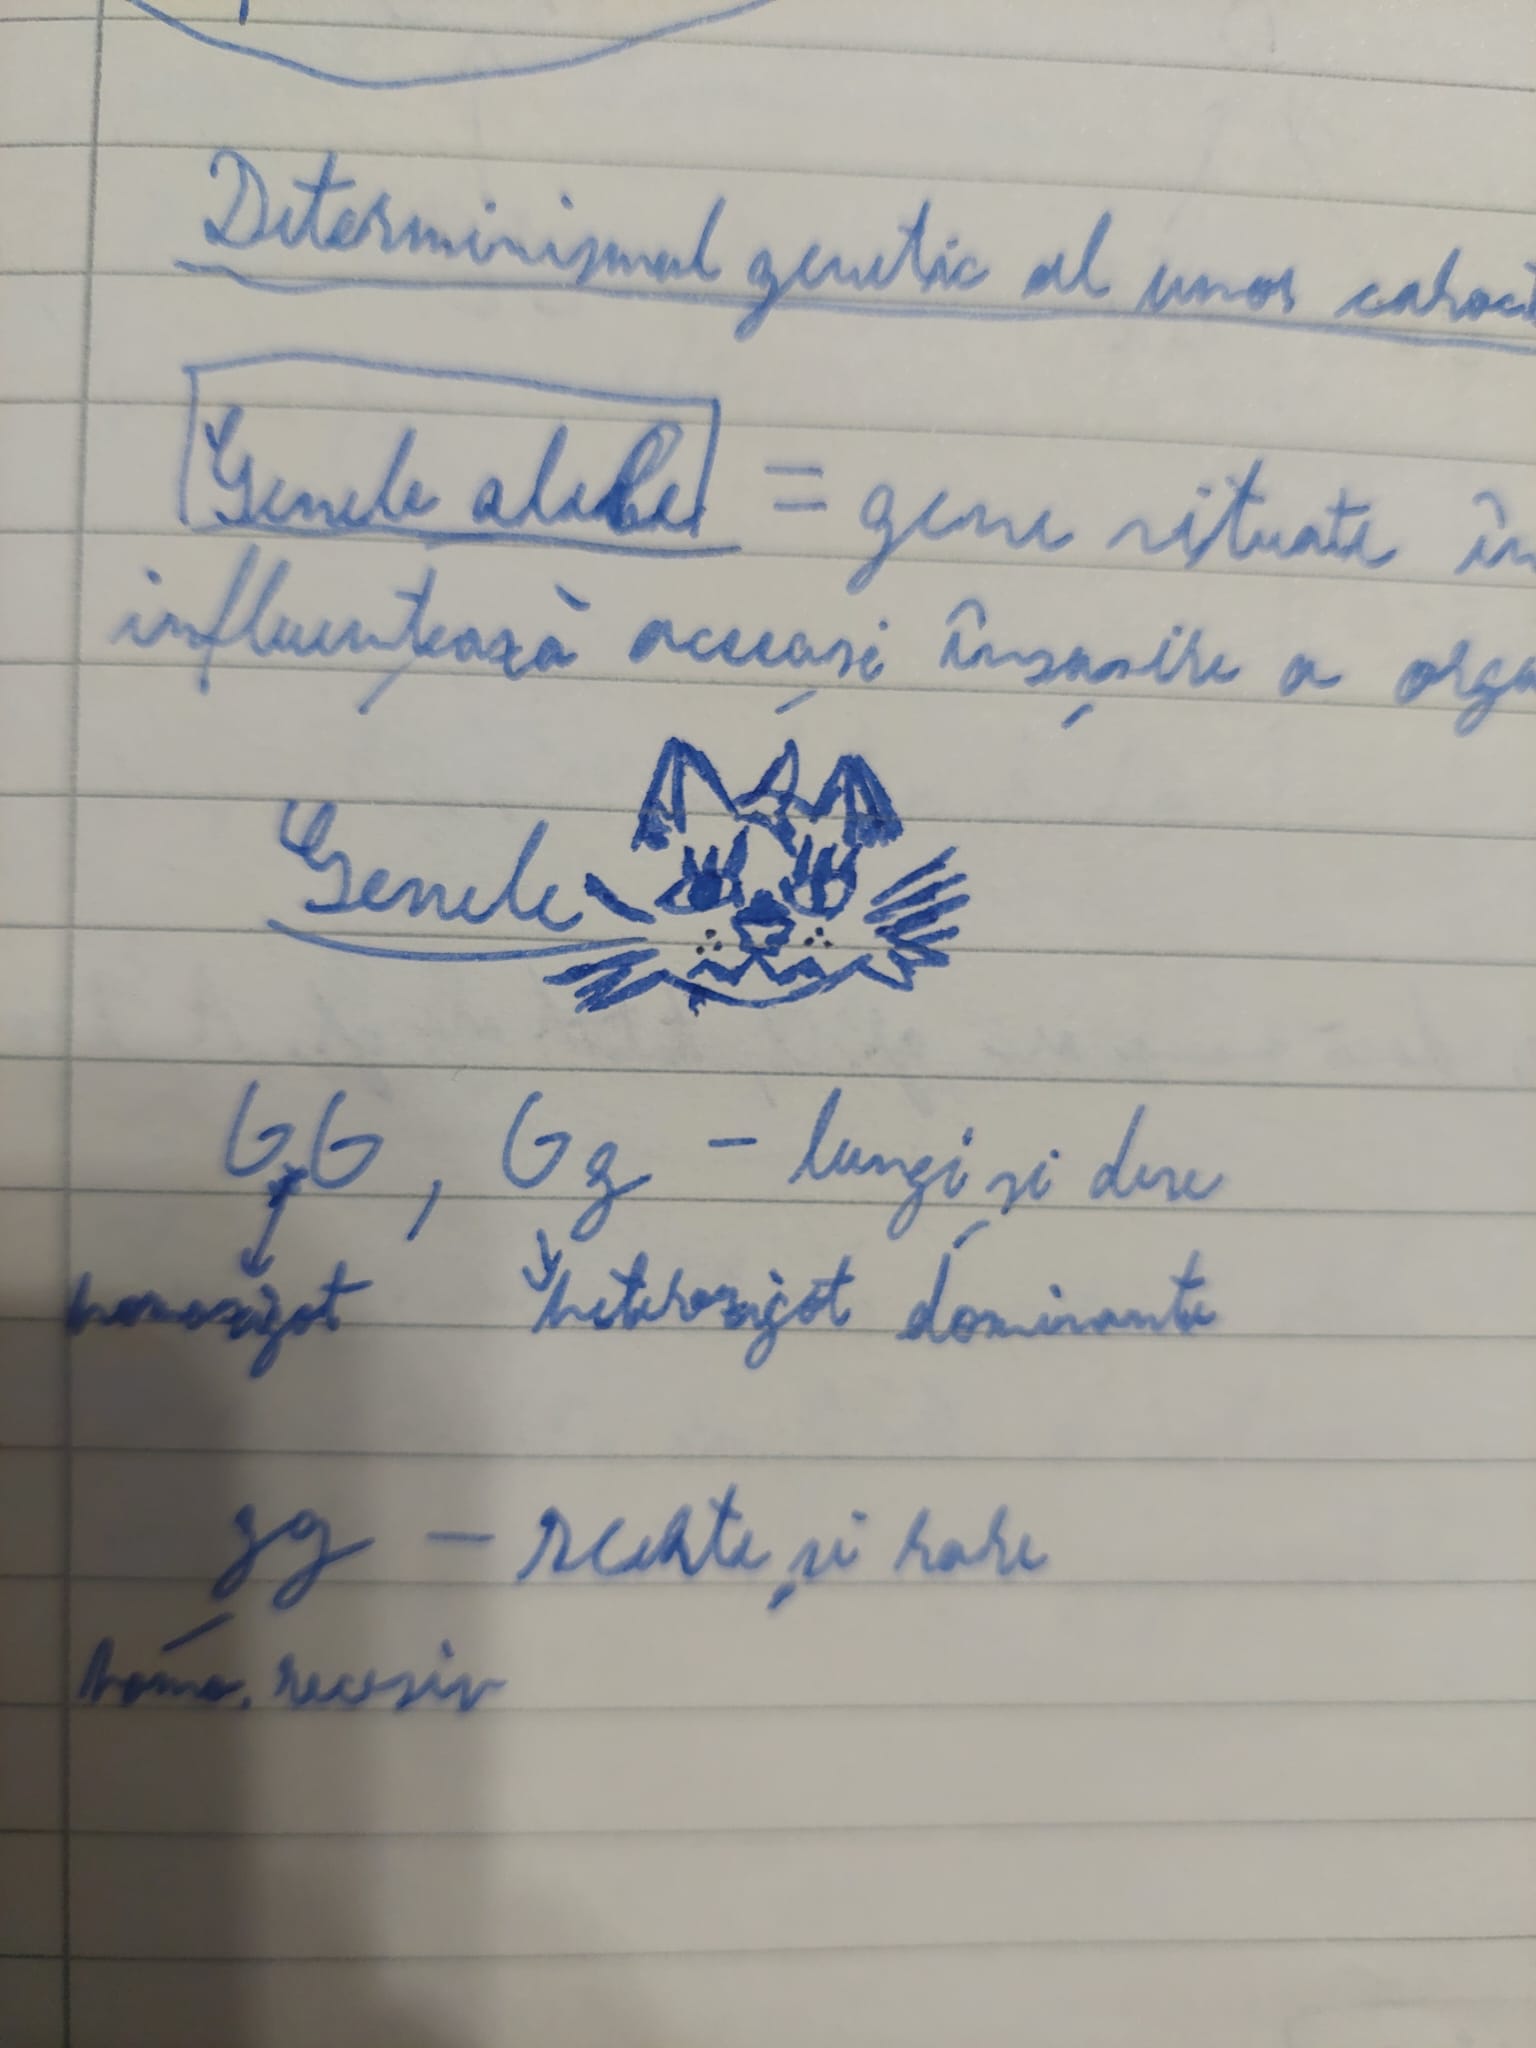 Determinismul genetic al unor caract
Genele alele = gene situate în
influențează aceeași însușire a orga
Genele
GG, Gg - lungi și dese
homozigot heterozigot dominante
gg - scurte și rare
homo. recesiv